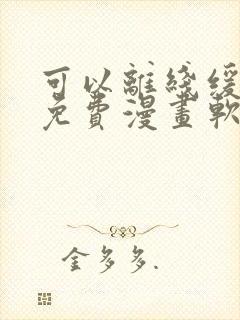 可以離綫緩
免費漫畫軟
金多多.